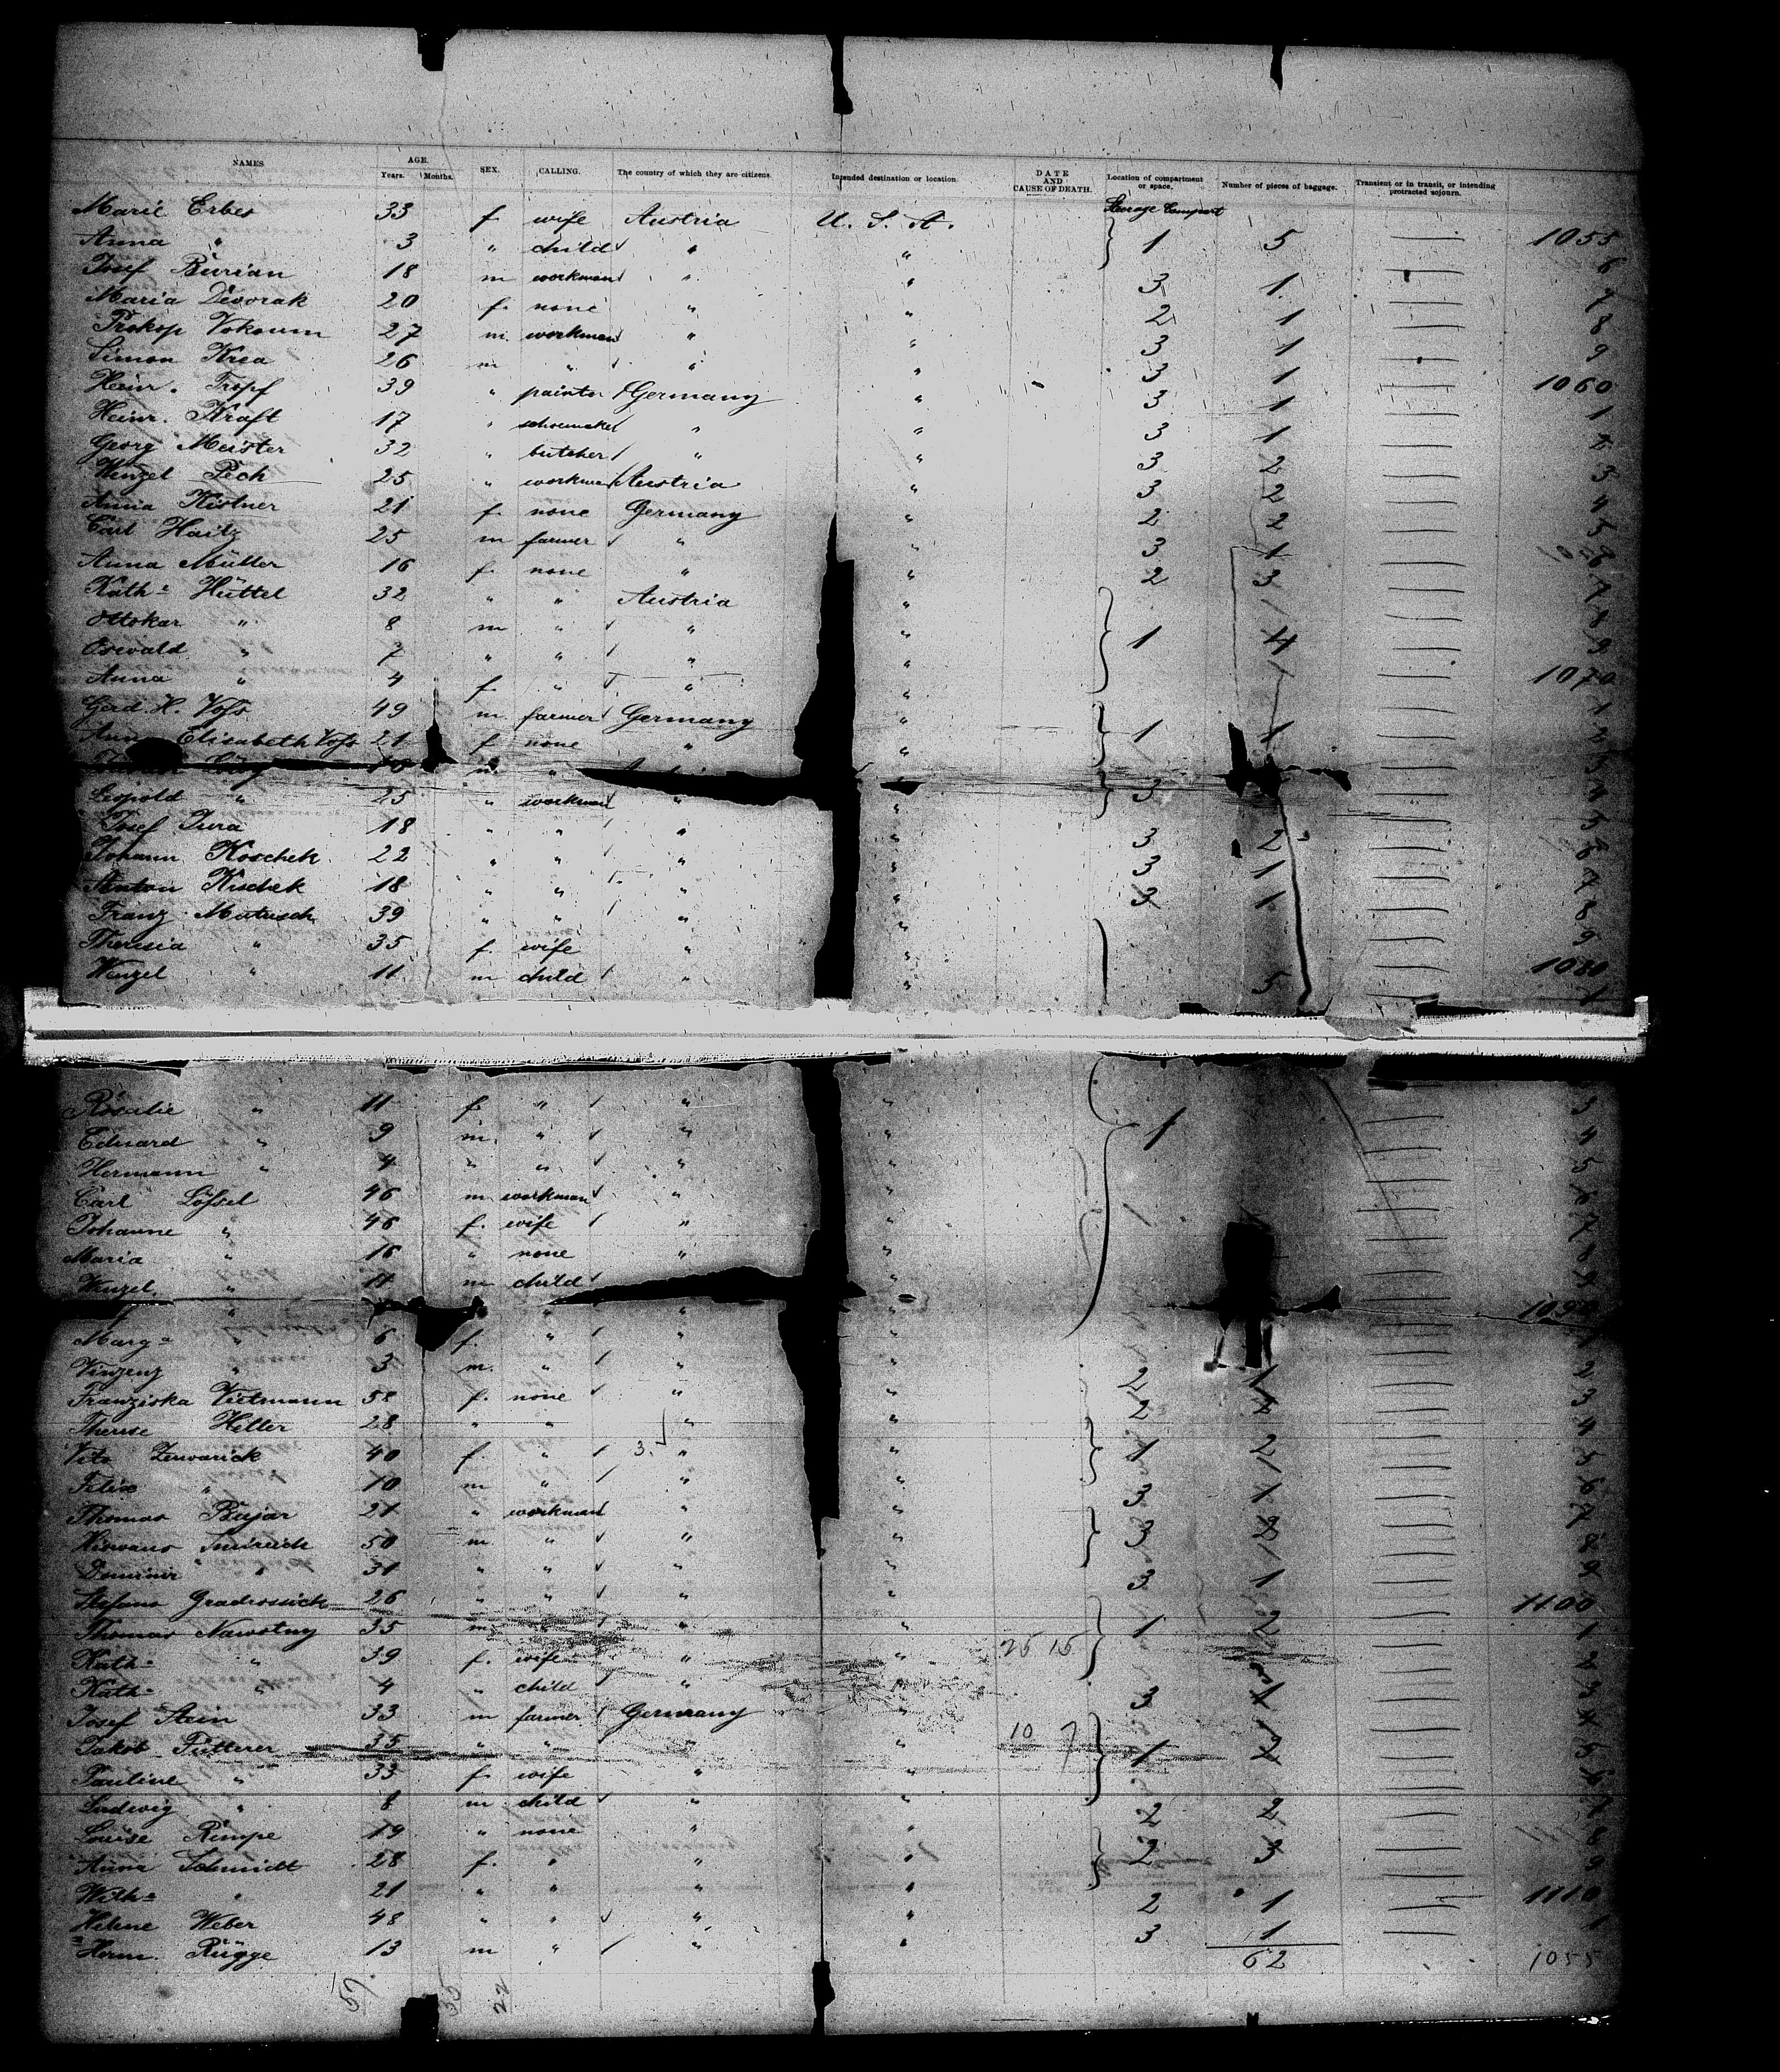 NAMES. AGE. Years. Months. SEX. CALLING. The country of which they are citizens. Intended destination or location. DATE AND CAUSE OF DEATH. Location of compartment or space. Number of pieces of baggage. Transient or in transit, or intending protracted sojourn.
Steerage Compart
Marie Erbes 33 f wife Austria U. S. A. 1055
Anna " 3 " child " " 1 5 6
Josef Burian 18 m workman " " 3 1 7
Maria Dvorak 20 f. none " " 2 1 8
Prokop Vokoun 27 m. workman " " 3 1 9
Simon Krea 26 m " " " 3 1 1060
Heinr. Tropf 39 " painter Germany " 3 1 1
Heinr. Kraft 17 " schoemaker " " 3 1 2
Georg Meister 32 " butcher " " 3 2 3
Wenzel Pech 25 " workman Austria " 3 2 4
Anna Kistner 21 f. none Germany " 2 2 5
Carl Haitz 25 m farmer " " 3 1 6
Anna Müller 16 f. none " " 2 3 7
Kath= Hüttel 32 " " Austria " 8
Ottokar " 8 m " " " 1 4 9
Oswald " 7 " " " " 1070
Anna " 4 f " " " 1
Gerd. H. Vofs 49 m farmer Germany " 1 1 2
Anna Elisabeth Vofs 21 f none " " 3
m " 4
Leopold " 25 " workman " " 3 5
Josef Jura 18 " " " " 3 2 6
Johann Koschek 22 " " " " 3 1 7
Anton Kischek 18 " " " " 3 1 8
Franz Matusch 39 " " " " 9
Theresia " 35 f. wife " " 1080
Wenzel " 11 m child " " 5 1
Rosalie " 11 f. " " " 3
Eduard " 9 m. " " " 1 4
Hermann " 4 " " " " 5
Carl Löfsel 46 m workman " " 6
Johanne " 46 f. wife " " 7
Maria " 16 " none " " 8
Wenzel " 11 m child " 9
" " " " 1090
Marg= " 6 f. " " " 1
Vinzenz " 3 m. " " " 2 1 2
Franziska Vietmann 58 f. none " " 2 3
Therese Hiller 28 " " " " 4
Vita 40 f. " 3. " " 1 2 5
Felix " 10 m " " " 3 1 6
Thomas Bujar 21 " workman " " 7
50 m " " " 3 2 8
" 31 " " " " 3 1 9
Stefano 26 " " " " 1100
Thomas Nawotny 35 m " " " 1 2 1
Kath= " 39 f. wife " " 25 15 2
Kath= " 4 " child " " 3 1 3
Josef Stein 33 m farmer Germany " 4
Jakob Fütterer 35 " " " " 10 7 1 5
Pauline " 33 f. wife " " 6
Ludwig " 8 m child " " 2 2 7
Louise Rimpe 19 " none " " 8
Anna Schmidt 28 f. " " " 2 3 9
Wilh= " 21 " " " " 2 1 1110
Helene Weber 48 " " " " 3 1 1
Herm. Rügge 13 m " " " 62 1055
57. 35 22